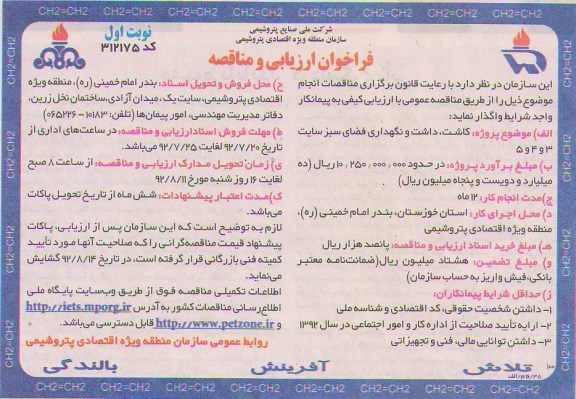 CH2=CH2 CH2=CH2 CH2=CH2 CH2=CH2 CH2=CH2 CH2=CH2 CH2=CH2
شرکت ملی صنایع پتروشیمی
سازمان منطقه ویژه اقتصادی پتروشیمی
نوبت اول
کد ۳۱۲۱۷۵
فراخوان ارزیابی و مناقصه
این سازمان در نظر دارد با رعایت قانون برگزاری مناقصات انجام
موضوع ذیل را از طریق مناقصه عمومی با ارزیابی کیفی به پیمانکار
واجد شرایط واگذار نماید:
الف) موضوع پروژه: کاشت، داشت و نگهداری فضای سبز سایت
۳ و ۴ و ۵
ب) مبلغ برآورد پروژه: در حدود ۱۰,۲۵۰,۰۰۰,۰۰۰ ریال (ده
میلیارد و دویست و پنجاه میلیون ریال)
ج) مدت انجام کار: ۱۲ ماه
د) محل اجرای کار: استان خوزستان، بندر امام خمینی (ره)،
منطقه ویژه اقتصادی پتروشیمی
هـ) مبلغ خرید اسناد ارزیابی و مناقصه: پانصد هزار ریال
و) مبلغ تضمین: هشتاد میلیون ریال (ضمانت‌نامه معتبر
بانکی، فیش واریز به حساب سازمان)
ز) حداقل شرایط پیمانکاران:
۱- داشتن شخصیت حقوقی، کد اقتصادی و شناسه ملی
۲- ارایه تأیید صلاحیت از اداره کار و امور اجتماعی در سال ۱۳۹۲
۳- داشتن توانایی مالی، فنی و تجهیزاتی
ح) محل فروش و تحویل اسناد: بندر امام خمینی (ره)، منطقه ویژه
اقتصادی پتروشیمی، سایت یک، میدان آزادی، ساختمان نخل زرین،
دفاتر مدیریت مهندسی، امور پیمان‌ها (تلفن: ۱۰۱۸۳-۰۶۵۲۲۶)
ط) مهلت فروش اسناد ارزیابی و مناقصه: در ساعت‌های اداری از
تاریخ ۹۲/۷/۲۰ لغایت ۹۲/۷/۲۵ می‌باشد.
ی) زمان تحویل مدارک ارزیابی و مناقصه: از ساعت ۸ صبح
لغایت ۱۶ روز شنبه مورخ ۹۲/۸/۱۱
ک) مدت اعتبار پیشنهادات: شش ماه از تاریخ تحویل پاکات
می‌باشد.
لازم به توضیح است که این سازمان پس از ارزیابی، پاکات
پیشنهاد قیمت مناقصه‌گرانی را که صلاحیت آنها مورد تأیید
کمیته فنی بازرگانی قرار گرفته است، در تاریخ ۹۲/۸/۱۴ گشایش
می‌نماید.
اطلاعات تکمیلی مناقصه فوق از طریق وب‌سایت پایگاه ملی
اطلاع‌رسانی مناقصات کشور به آدرس http://iets.mporg.ir
و http://www.petzone.ir قابل دسترسی می‌باشد.
روابط عمومی سازمان منطقه ویژه اقتصادی پتروشیمی
تلاش آفرینش بالندگی
CH2=CH2 CH2=CH2 CH2=CH2 CH2=CH2 CH2=CH2 CH2=CH2 CH2=CH2